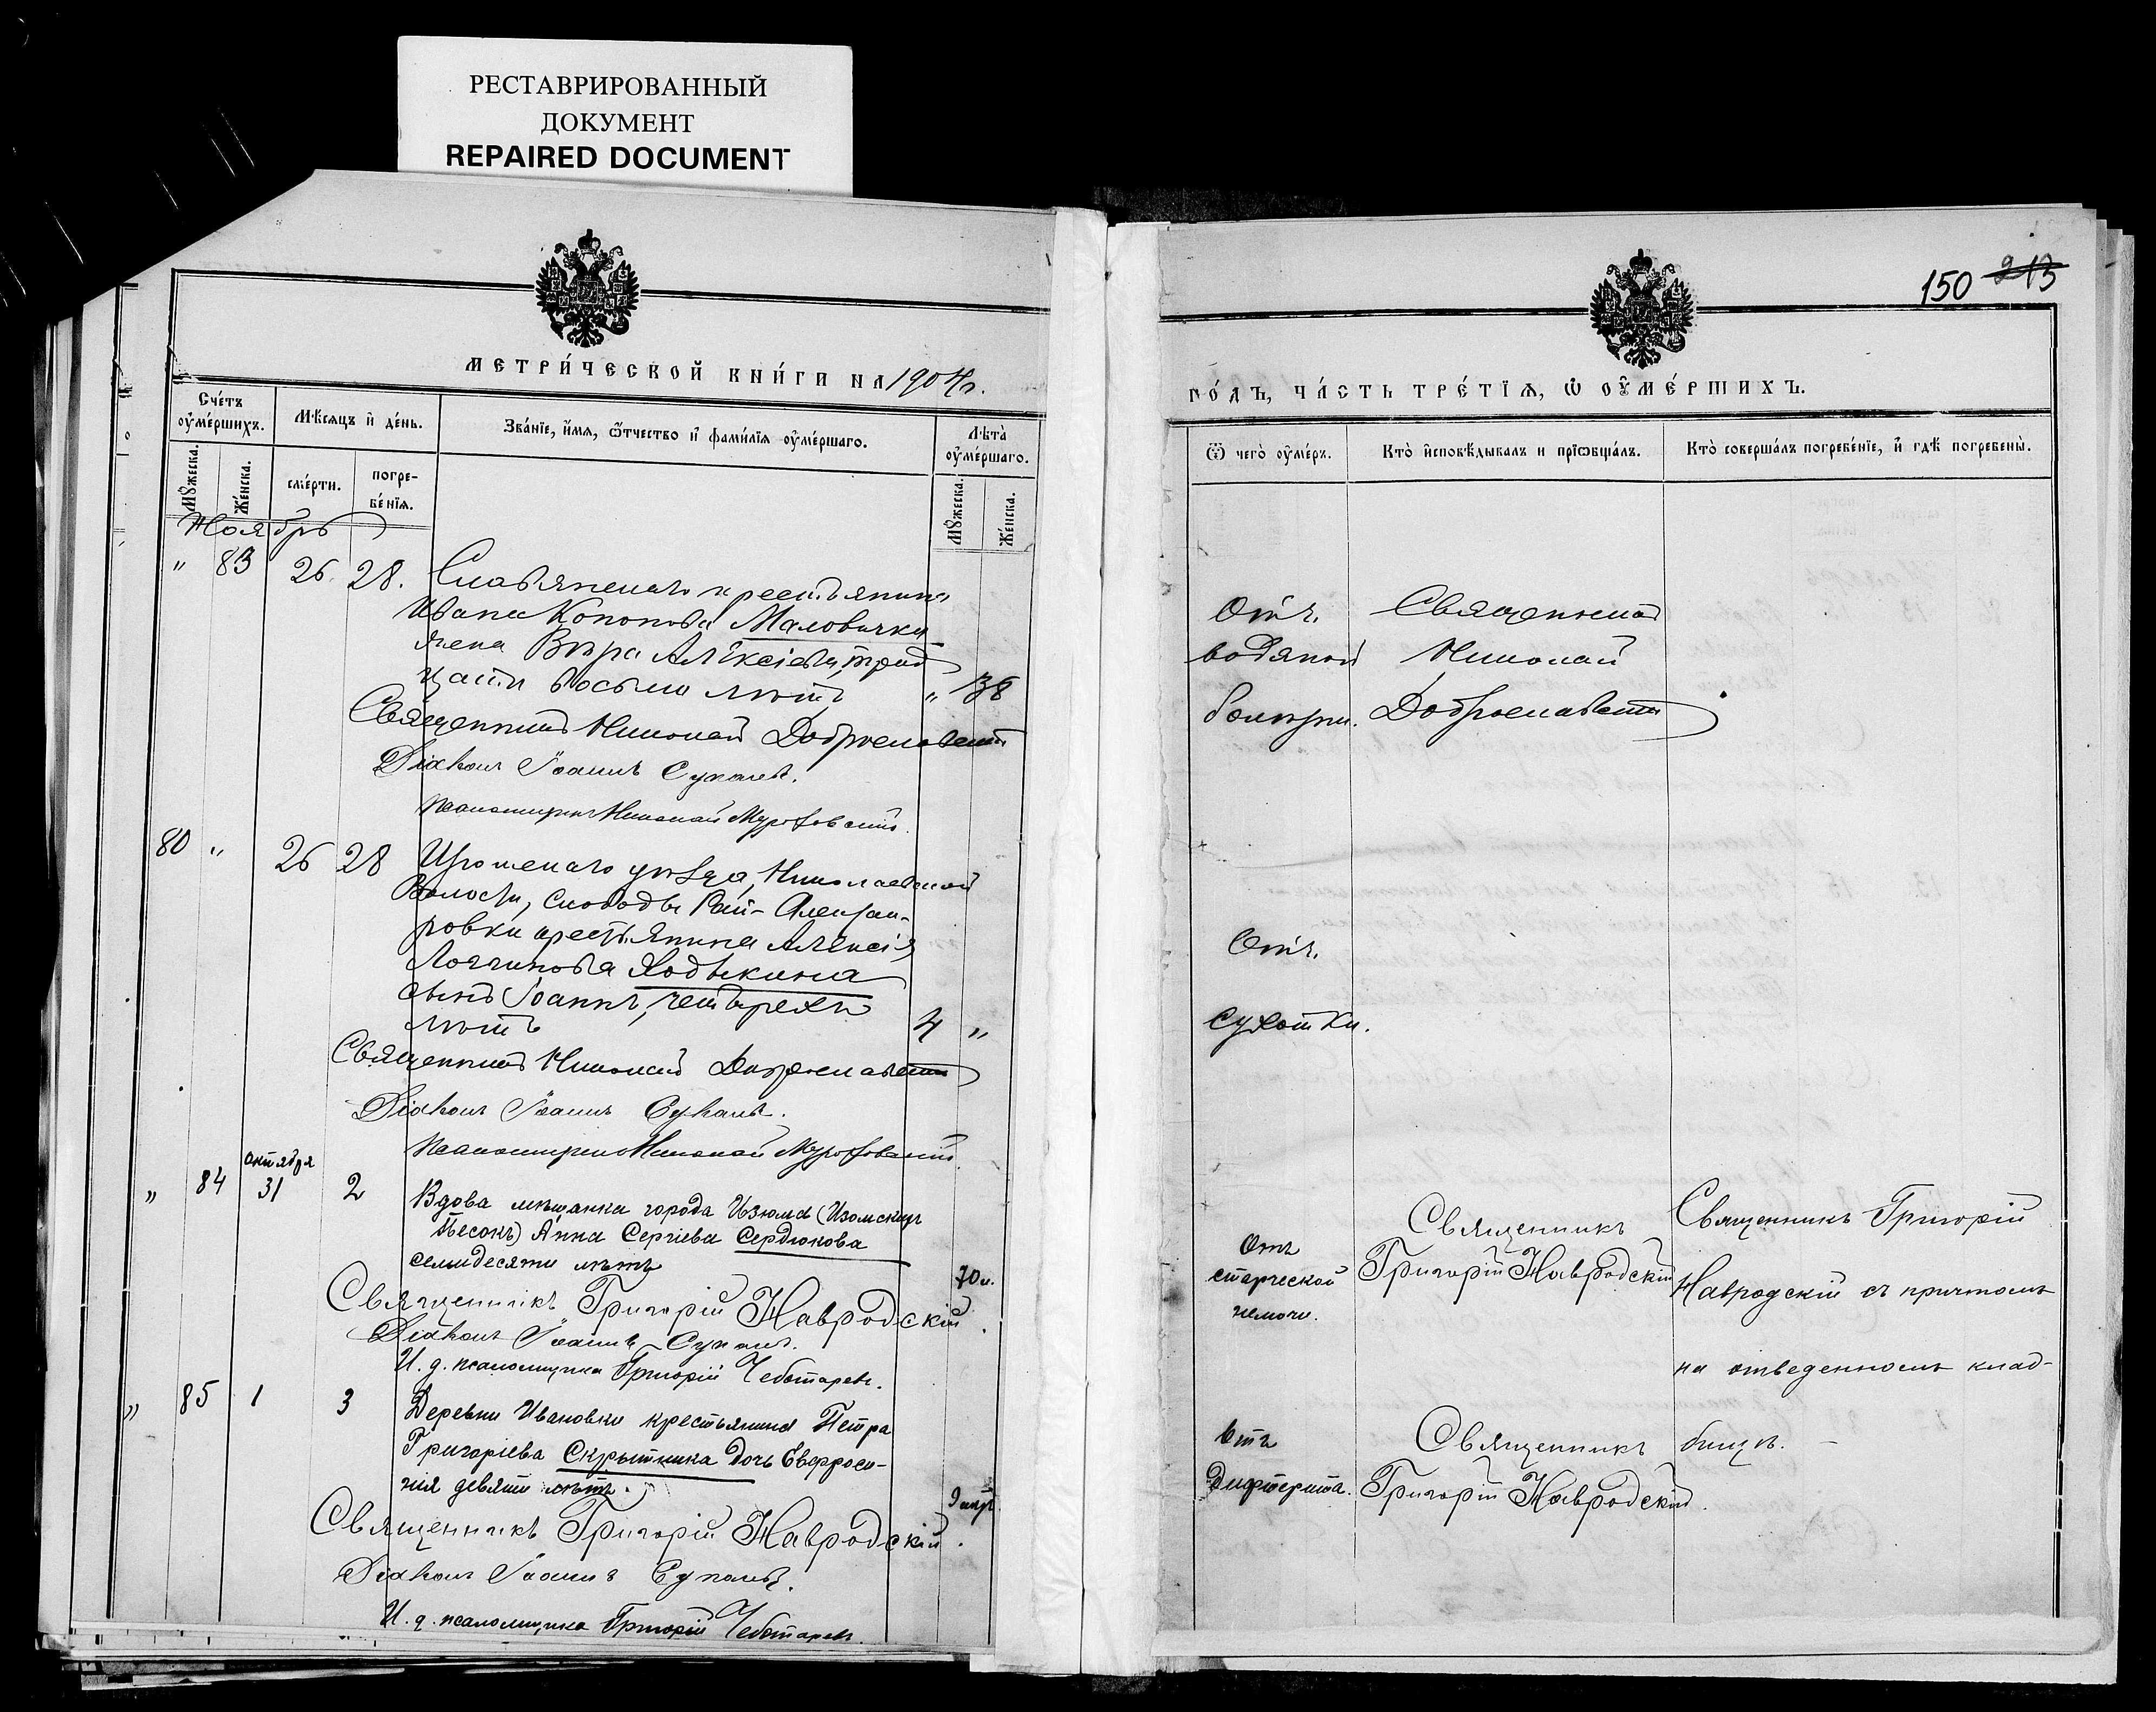 РЕСТАВРИРОВАННЫЙ
ДОКУМЕНТ
REPAIRED DOCUMENT
МЕТРИ́ЧЕСКОЙ КНИ́ГИ НА 1904 г.
Сче́тъ оу҆ме́ршихъ.
Мѣ́сяцъ и҆ де́нь.
Зва́нїе, и҆́мя, ѻ҆́тчество и҆ фами́лїя оу҆ме́ршаго.
Лѣ́та оу҆ме́ршаго.
Мꙋ́жеска.
Же́нска.
сме́рти.
погре-
бе́нїя.
Мꙋ́жеска.
Же́нска.
Ноябрь
" 83 26. 28. Славянскаго крестьянина
Ивана Кононова Маловичка
жена Вѣра Алексіева, трид
цати восьми лѣтъ " 38
Священникъ Николай Доброславскій
Діаконъ Іоаннъ
Псаломщикъ Николай
80 " 26 28 Изюмскаго уѣзда, Николаевской
Волости, слободы Рай-Александ-
ровки крестьянина Алексія
Логгинова Ходыкина
сынъ Іоаннъ, четырехъ
лѣтъ 4 "
Священникъ Николай Доброславскій
Діаконъ Іоаннъ
Псаломщикъ Николай
октября
" 84 31 2 Вдова мѣщанка города Изюма (Изюмскихъ
Песокъ) Анна Сергіева Сердюкова
семидесяти лѣтъ 70 л.
Священникъ Григорій Навродскій.
Діаконъ Іоаннъ
И. д. псаломщика Григорій Чеботаревъ.
" 85 1 3 Деревни Ивановки крестьянина Петра
Григоріева Скрытника дочь Евфроси-
нія девяти лѣтъ. 9
Священникъ Григорій Навродскій.
Діаконъ Іоаннъ
И. д. псаломщика Григорій Чеботаревъ.
150 213
ГО́ДЪ, ЧА́СТЬ ТРЕ́ТЇЯ, Ѡ҆ ОУ҆МЕ́РШИХЪ.
Ѿ чегѡ̀ оу҆ме́ръ.
Кто̀ и҆сповѣ́дывалъ и прїѡбща́лъ.
Кто̀ соверша́лъ погребе́нїе, и҆ гдѣ̀ погребены̀.
Отъ Священникъ
водяной Николай
болѣзни. Доброславскій
Отъ
сухотки.
Отъ
старческой
немочи.
Священникъ
Григорій Навродскій
Священникъ Григорій
Навродскій съ причтомъ
на отведенномъ клад-
бищѣ.
Отъ
дифтерита.
Священникъ
Григорій Навродскій.